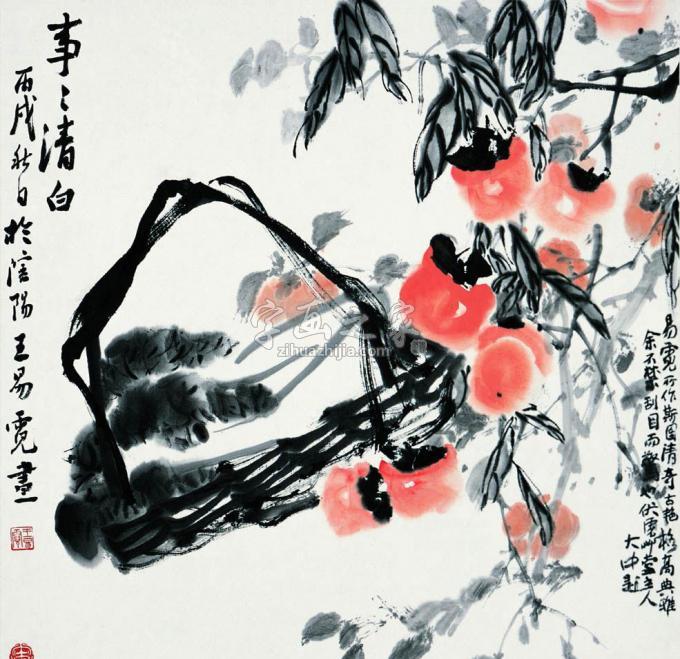 事〻清白
丙戌秋日於信阳王易霓畫
字画之家
zihuazhijia.com
易霓所作斯图清奇古艳格高典雅
余不禁刮目而
主人
大中题